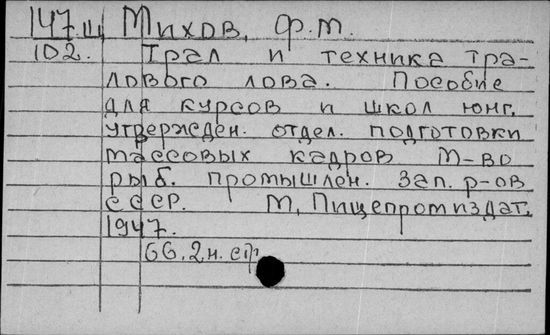 147.ш Михов, Ф.М.
102. Трал и техника тра-
лового лова. Пособие
для курсов и школ юнг.
Утвержден. отдел. подготовки
массовых кадров М-во
рыб. промышлен. зап. р-ов
СССР. М, Пищепромиздат,
1947.
66.2н. стр